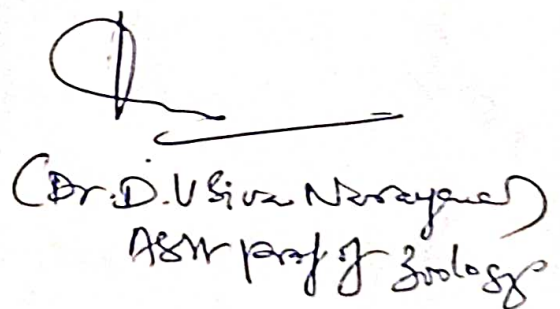 (Dr. D. V Siva Narayana)
Asst prof of Zoology